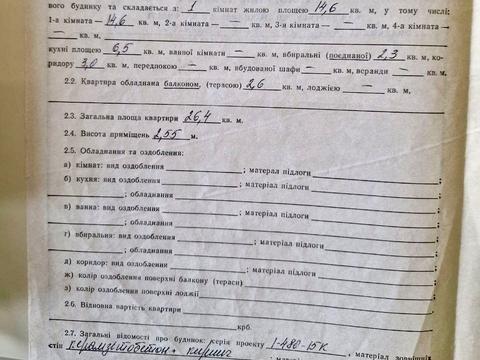 вого будинку та складається з: 1 кімнат жилою площею 14,6 кв. м, у тому числі:
1-а кімната — 14,6 кв. м, 2-а кімната — кв. м, 3-и кімната — кв. м, 4-а кімната —
— кв. м,
кухні площею 6,5 кв. м, ванної кімнати — кв. м, вбиральні (поєднаної) 2,3 кв. м, ко-
ридору 3,0 кв. м, передпокою — кв. м, вбудованої шафи — кв. м, веранди — кв. м,
2.2. Квартира обладнана балконом, (терасою) 2,6 кв. м, лоджією — кв. м,
2.3. Загальна площа квартири 26,4 кв. м.
2.4. Висота приміщень 2,55 м.
2.5. Обладнання та оздоблення:
а) кімнат: вид оздоблення ; матерал підлоги ;
б) кухня: вид оздоблення ; матеріал підлоги ;
; обладнання
в) ванна: вид оздоблення ; матеріал підлоги ;
; обладнання
г) вбиральня: вид оздоблення ; матеріал підлоги ;
; обладнання
д) коридор: вид оздоблення ; матеріал підлоги ;
ж) колір оздоблення поверхні балкону (тераси)
з) колір оздоблення поверхні лоджії
2.6. Відновна вартість квартири крб.
2.7. Загальні відомості про будинок: серія проекту 1-480-15К
стін керамзітобетон, матеріал зовнішніх